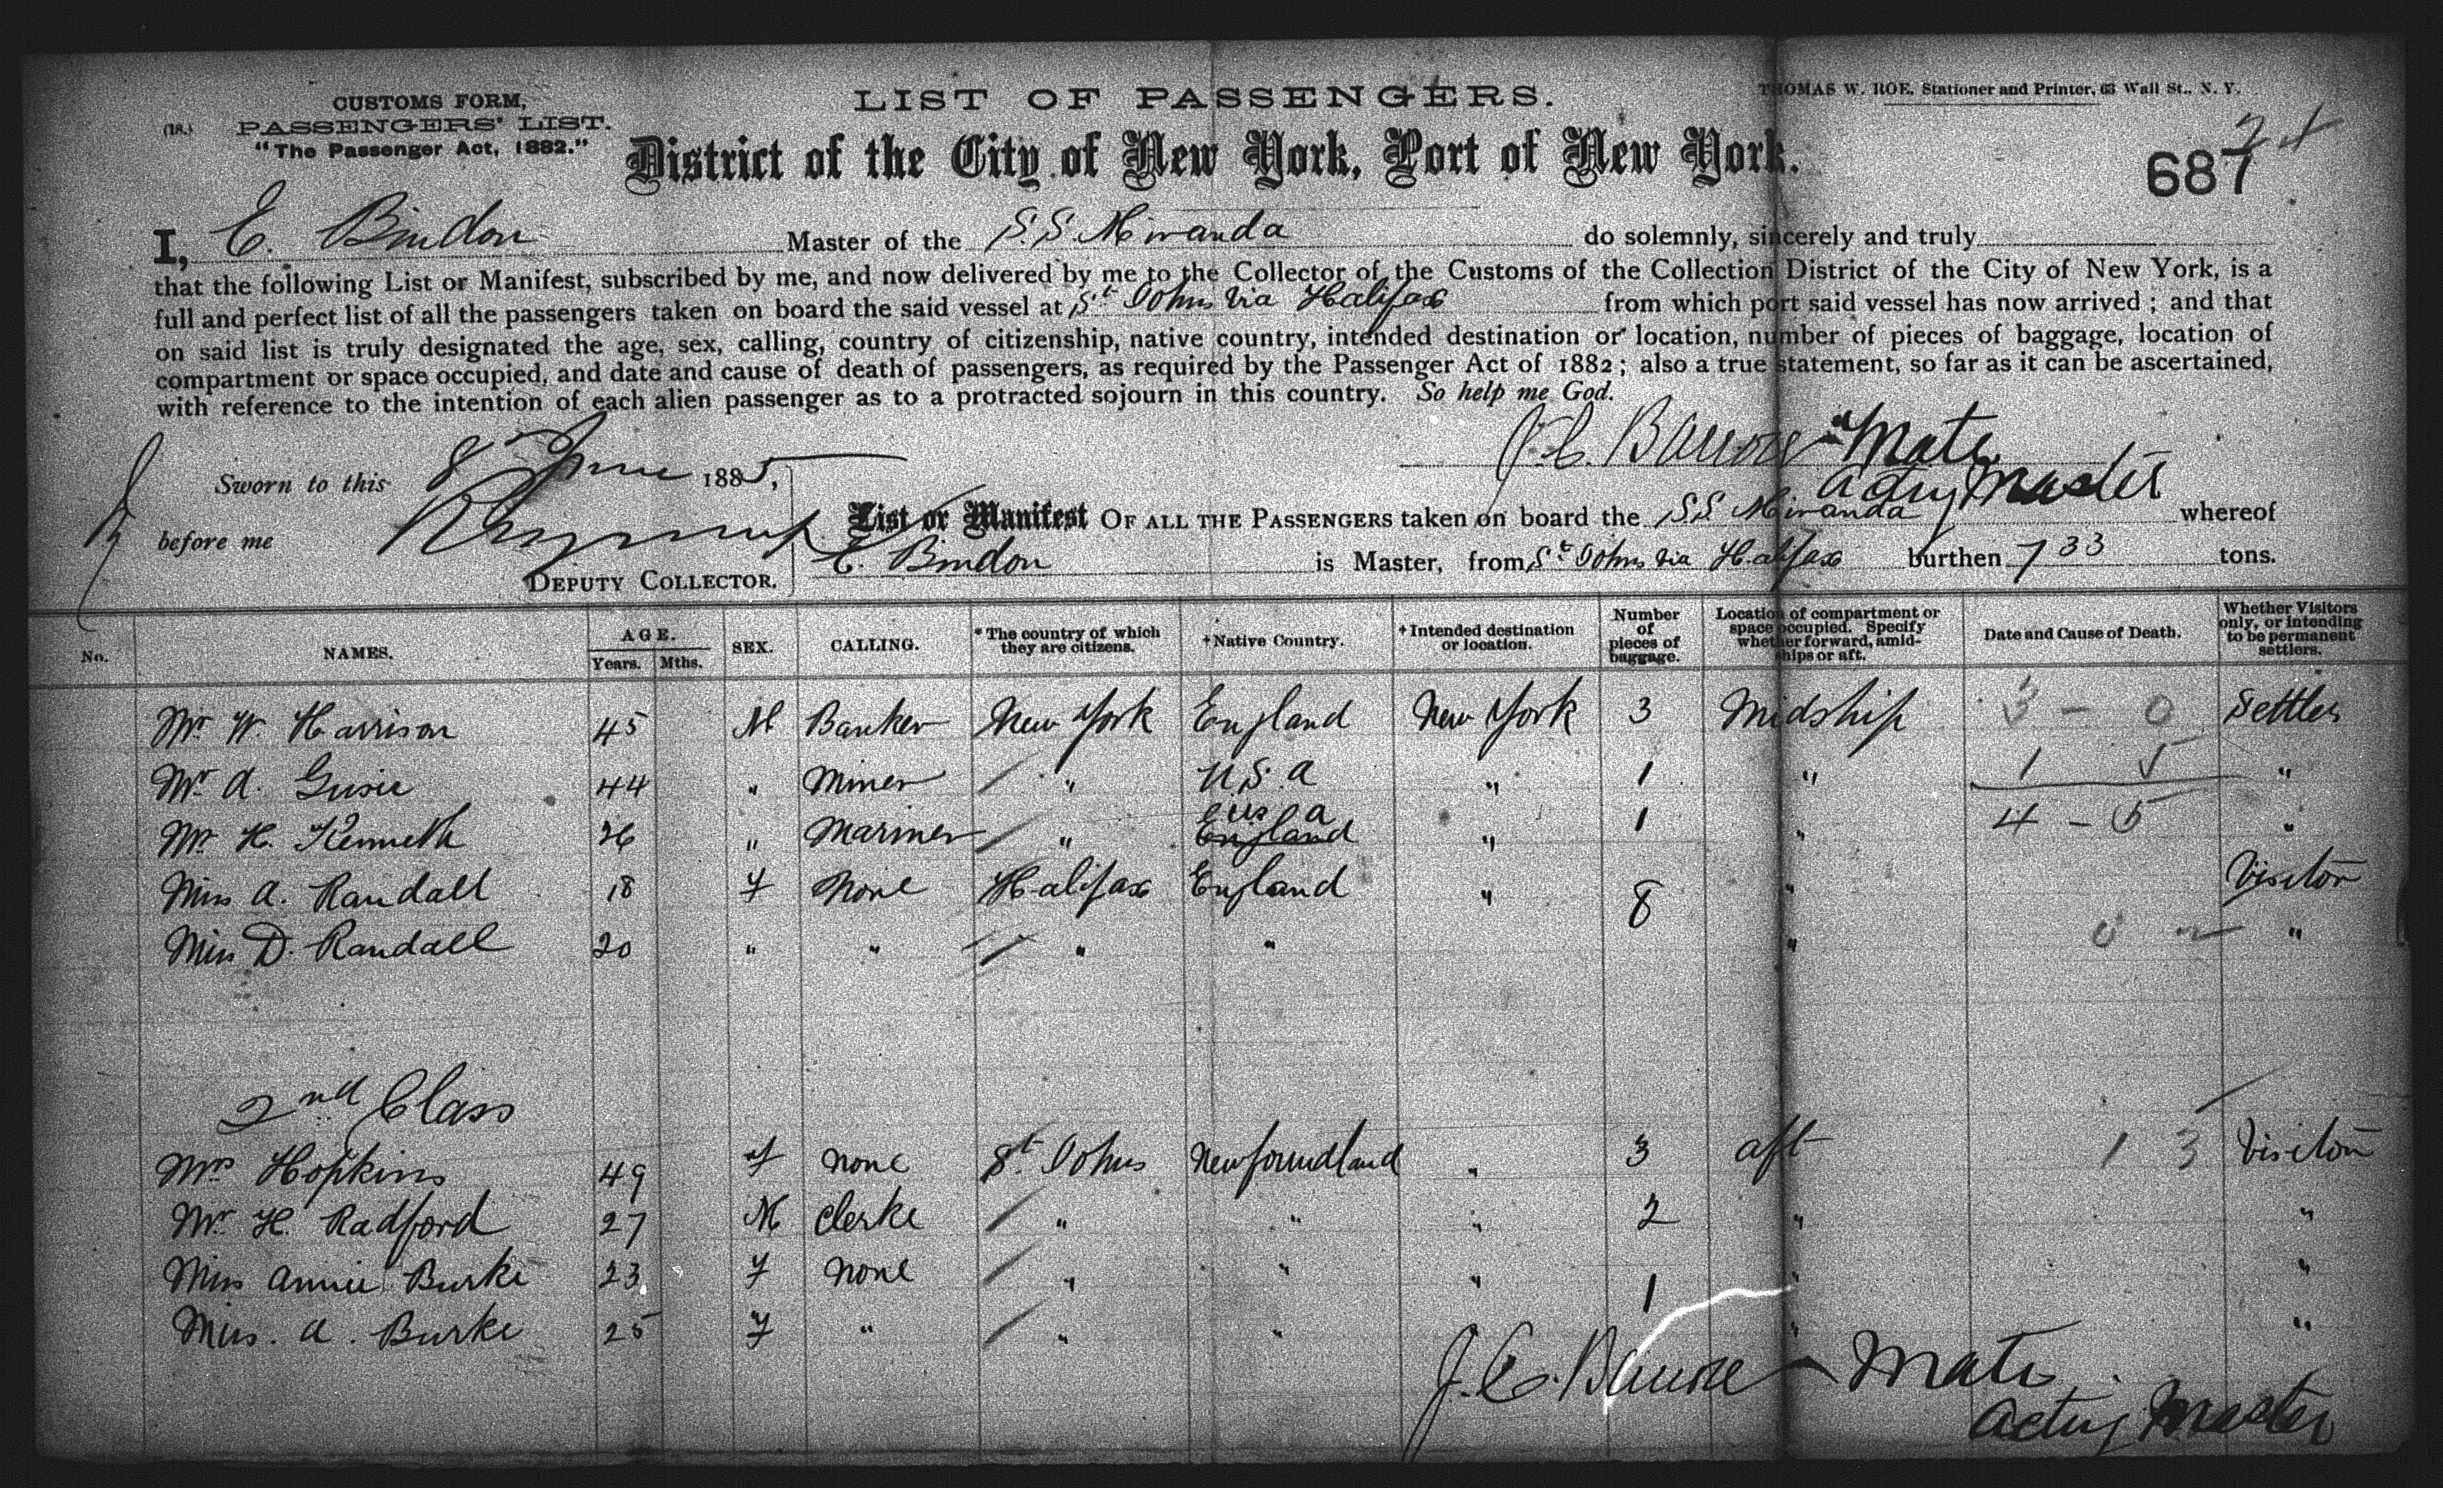 CUSTOMS FORM,
(18.) PASSENGERS' LIST.
"The Passenger Act, 1882."
LIST OF PASSENGERS.
THOMAS W. ROE, Stationer and Printer, 63 Wall St., N. Y.
District of the City of New York, Port of New York.
687
I, E. Bindon Master of the S.S. Miranda do solemnly, sincerely and truly
that the following List or Manifest, subscribed by me, and now delivered by me to the Collector of the Customs of the Collection District of the City of New York, is a
full and perfect list of all the passengers taken on board the said vessel at St Johns via Halifax from which port said vessel has now arrived; and that
on said list is truly designated the age, sex, calling, country of citizenship, native country, intended destination or location, number of pieces of baggage, location of
compartment or space occupied, and date and cause of death of passengers, as required by the Passenger Act of 1882; also a true statement, so far as it can be ascertained,
with reference to the intention of each alien passenger as to a protracted sojourn in this country. So help me God.
J. C. Mate
Acting Master
Sworn to this 8 June 1885,
before me
DEPUTY COLLECTOR.
List or Manifest OF ALL THE PASSENGERS taken on board the S.S. Miranda whereof
E. Bindon is Master, from St Johns via Halifax burthen 733 tons.
No. NAMES. AGE. Years. Mths. SEX. CALLING. *The country of which they are citizens. †Native Country. †Intended destination or location. Number of pieces of baggage. Location of compartment or space occupied. Specify whether forward, amidships or aft. Date and Cause of Death. Whether Visitors only, or intending to be permanent settlers.
Mr W. Harrison 45 M Banker New York England New York 3 Midship 3 - 0 Settler
Mr A. 44 " Miner " U.S.A " 1 " 1 5 "
Mr H. Kenneth 26 " Mariner " U S A England " 1 " 4 - 5 "
Miss A. Randall 18 F None Halifax England " 8 " Visitor
Miss D. Randall 20 " " " " " "
2nd Class
Mrs Hopkins 49 f none St Johns Newfoundland " 3 aft 1 3 Visitor
Mr H. Radford 27 M Clerke " " " 2 " "
Miss Annie Burke 23 F None " " " 1 " "
Miss. A. Burke 25 F " " " " "
J. C. Mate
Acting Master